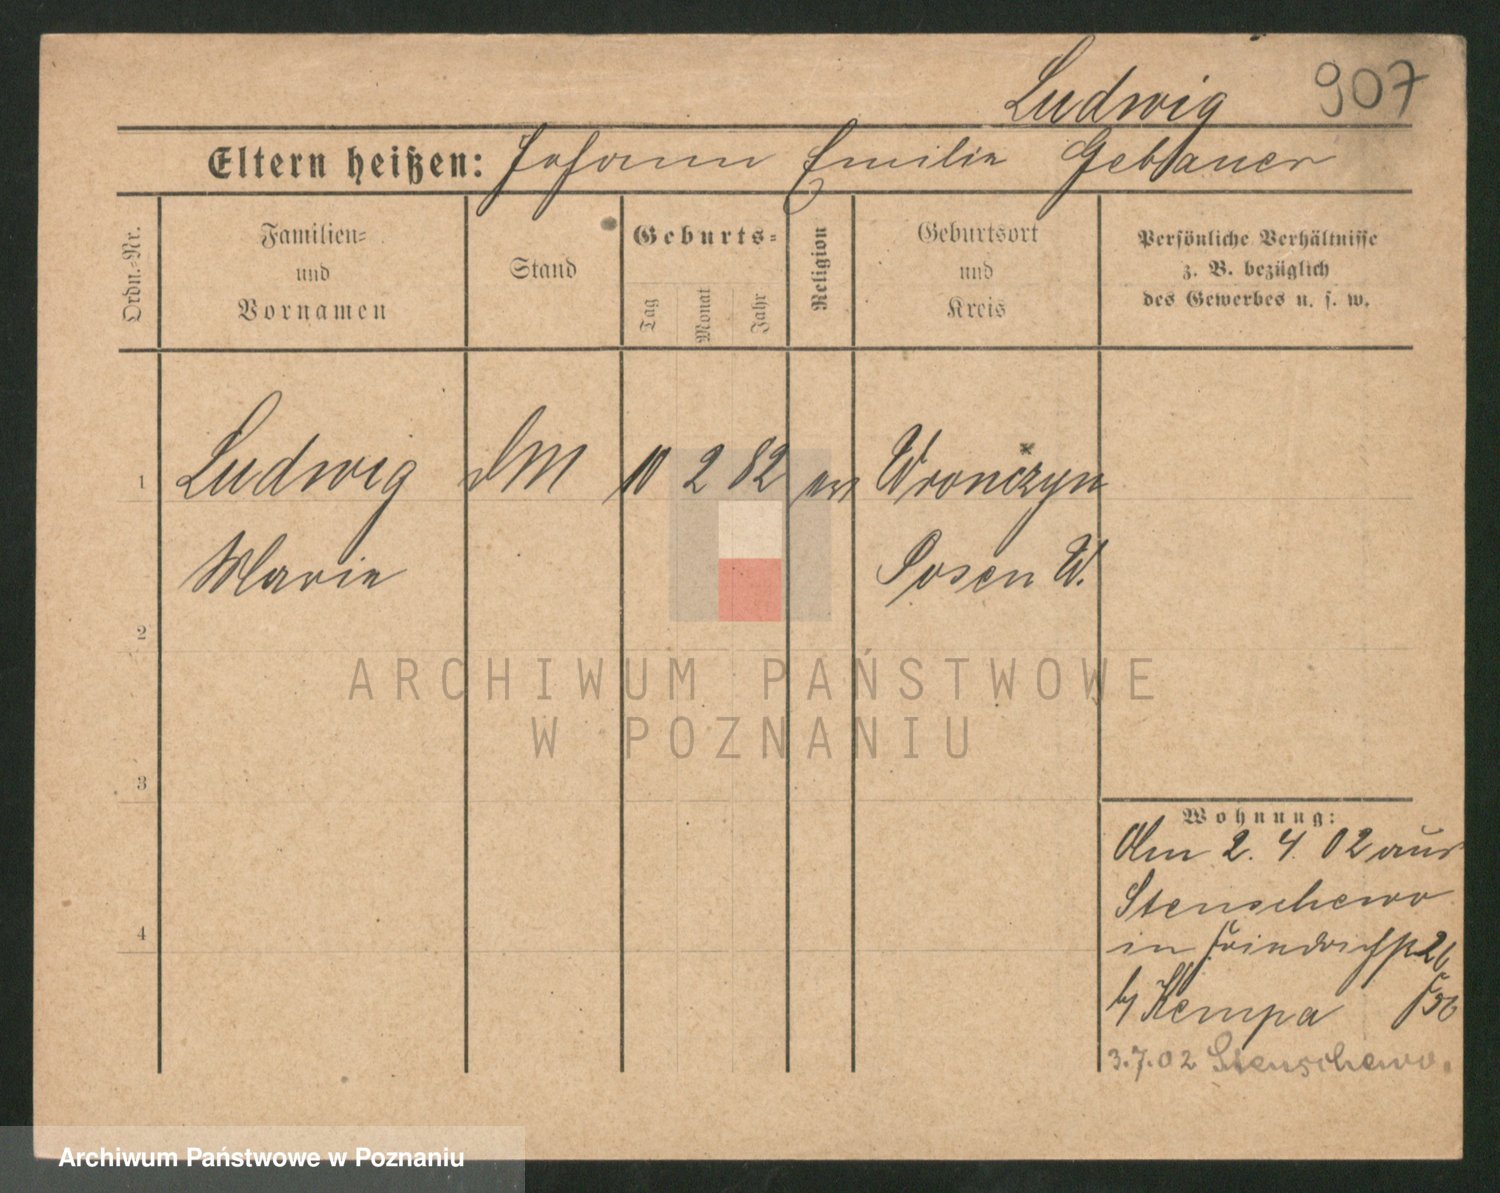 Ludwig 907
Eltern heißen: Johann Emilie Gebauer
Ordn.-Nr.
Familien-
und
Vornamen
Stand
Geburts-
Tag
Monat
Jahr
Religion
Geburtsort
und
Kreis
Persönliche Verhältnisse
z. B. bezüglich
des Gewerbes u. s. w.
1 Ludwig DM 10 2 82 ev Wronczyn
Marie Posen W.
2
ARCHIWUM PAŃSTWOWE
W POZNANIU
3
Wohnung:
Am 2. 4. 02 aus
Stenschewo
4
in Friedrichstr 26
b/ Kempa
3.7.02 Stenschewo.
Archiwum Państwowe w Poznaniu